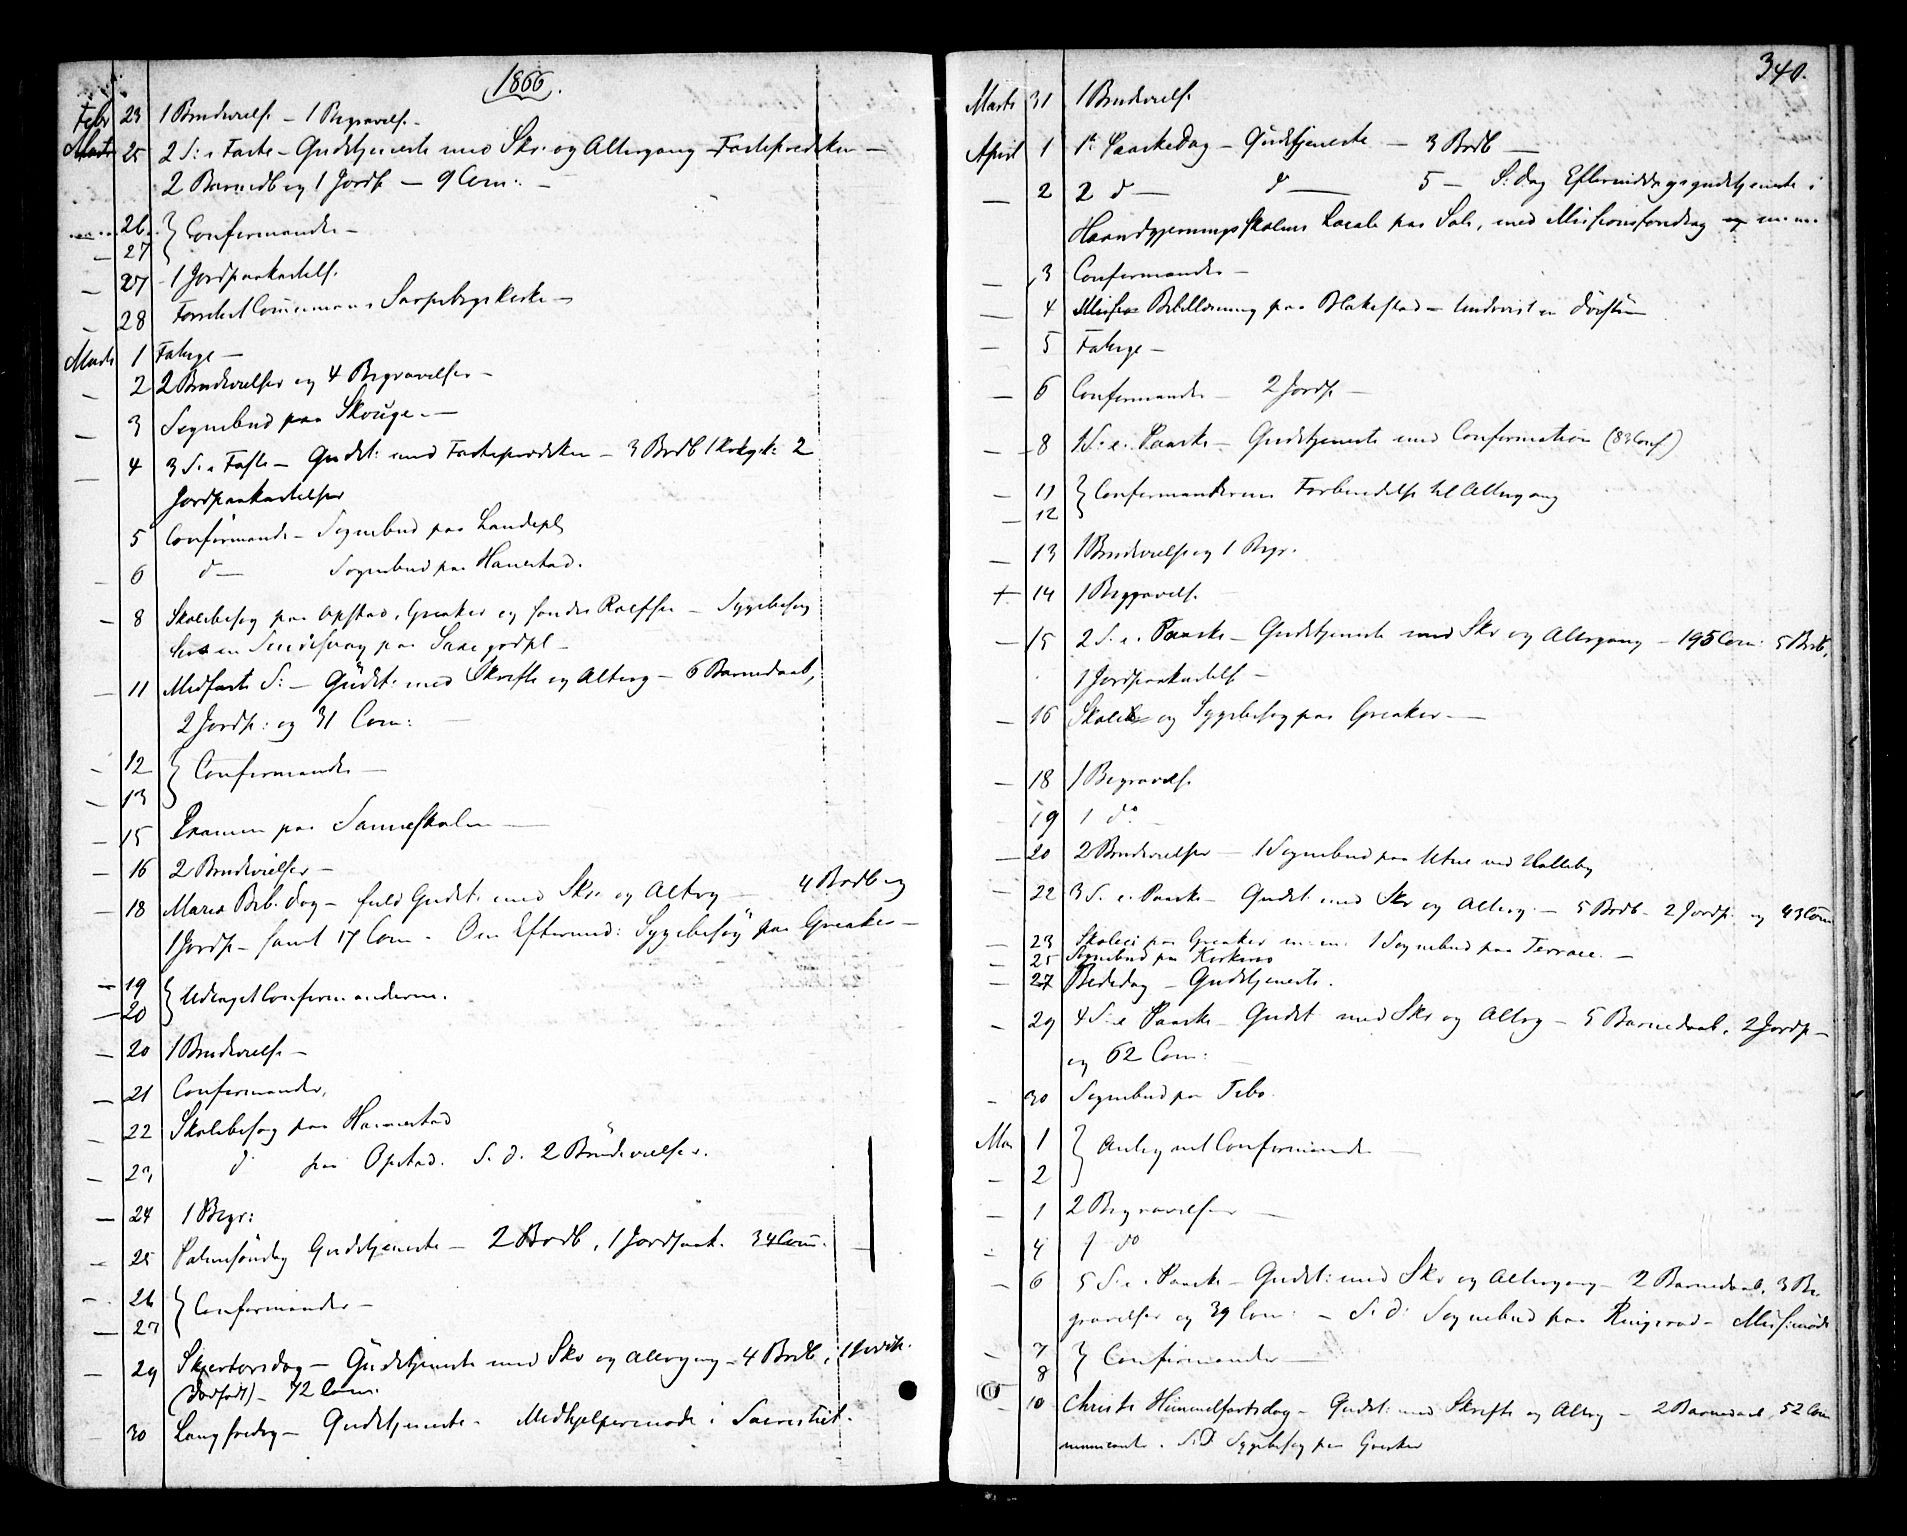 1866.
Febr 23 1 Brudevielse – 1 Begravelse –
25 2 S: i Faste – Gudstjeneste med Skr. og Altergang – Fasteprædiken –
2 Barnedb og 1 Jordp. – 9 Com: –
– 26
– 27 } Confirmander –
– 27 1 Jordpaakastelse
– 28 Forsket Commission Sarpsborgs Kirke –
Marts 1 Fattige –
– 2 2 Brudevielser og 4 Begravelser –
– 3 Sognebud paa Skouge. –
– 4 3 S. i Faste – Gudst: med Fasteprædiken – 3 Brdb 1 Kirkegk: 2
Jordpaakastelser
5 Confirmand. – Sognebud paa Landepl
– 6 do – Sognebud paa Hanestad.
– 8 Skolebesøg paa Opstad, Greaker og søndre Rolfsø – Sygebesøg
hos en Sindssvag paa
– 11 Midfaste S: – Gudst: med Skrifte og Alterg – 6 Barnedaab,
2 Jordp: og 31 Com: –
– 12
– 13 } Confirmander –
– 15 Examen paa Sanneskolen –
– 16 2 Brudevielser –
– 18 Maria Beb. dag – fuld Gudst. med Skr. og Alterg – 4 Brdb og
1 Jordp – samt 17 Com – Om Eftermid: Sygebesøg paa Greaker –
– 19
– 20 } Udtaget Confirmanderne.
– 20 1 Brudevielse –
– 21 Confirmander.
– 22 Skolebesøg paa Hannestad
– 23 do paa Opstad. S. d. 2 Brudevielser.
– 24 1 Begr:
– 25 Palmesøndag Gudstjeneste – 2 Brdb, 1 Jordpaak. 34 Com. –
– 26
– 27 } Confirmander –
– 29 Skjertorsdag – Gudstjeneste med Skr og Altergang – 4 Brdb,
(dødfødt) – 72 Com.
– 30 Langfredag – Gudstjeneste – Medhjelpermøde i Sacristiet.
340.
Marts 31 1 Brudevielse
April 1 1ste Paaskedag – Gudstjeneste – 3 Brdb –
– 2 2 d – d – 5 – S: dag Eftermiddagsgudstjeneste i
Haandgjerningsskolens Locale paa Sole, med Missionsforedrag m. m.
– 3 Confirmander –
– 4 Bibellæsning paa Blakestad –
– 5 Fattige –
– 6 Confirmander – 2 Jordp –
– 8 1 S. e. Paaske – Gudstjeneste med Confirmation (83 Conf)
– 11
– 12 } Confirmandernes Forberedelse til Altergang
– 13 1 Brudevielse og 1 Begr.
+ 14 1 Begravelse
– 15 2 S. e. Paaske – Gudstjeneste med Skr og Altergang – 195 Com: 5 Brdb,
1 Jordpaakastelse –
– 16 Skole og Sygebesøg paa Greaker. –
– 18 1 Begravelse
– 19 1 do. –
– 20 2 Brudevielser – 1 Sognebud paa Utne ved Halleby
– 22 3 S. e. Paaske – Gudst. med Skr og Alterg. – 5 Brdb – 2 Jordp. og 43 Com
– 23 Skolen paa Greaker m. m. 1 Sognebud paa Terrace. –
– 25 Sognebud paa
– 27 Bededag – Gudstjeneste.
– 29 4 S. e Paaske – Gudst med Skr og Alterg – 5 Barnedaab, 2 Jordp –
og 62 Com: –
– 30 Sognebud paa Tebo.
Mai 1
– 2 } Antegnet Confirmander –
– 1 2 Begravelser –
– 4 1 do
– 6 5 S. e. Paaske – Gudst: med Skr og Altergang – 2 Barnedaab, 3 Be-
gravelser og 39 Com: – S. d: Sognebud paa Ringerød – Miss:møde
– 7
– 8 } Confirmander –
– 10 Christi Himmelfartsdag – Gudst: med Skrifte og Alterg – 2 Barnedaab, 52 Com
municanter. S. D Sygebesøg paa Greaker